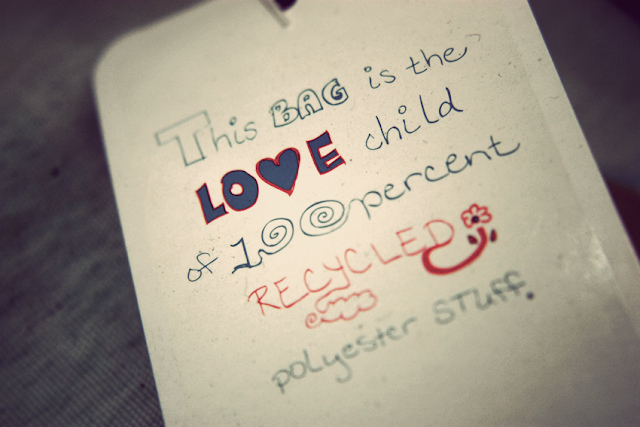 This BAG is the
LO♥E child
of 100 percent
RECYCLED
polyester STUFF.